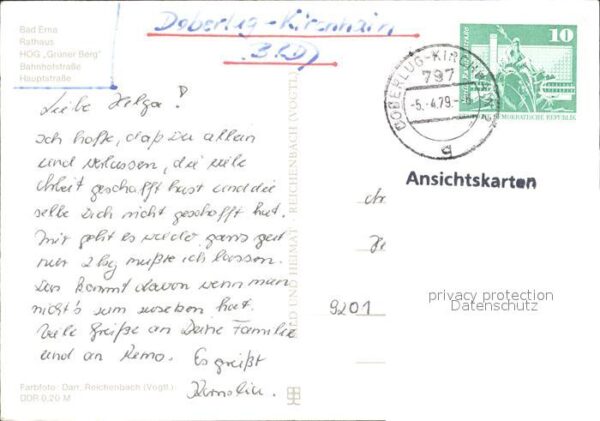 Bad Erna
Rathaus
HOG „Grüner Berg“
Bahnhofstraße
Hauptstraße
Doberlug-Kirchhain
(BRD)
10
DEMOKRATISCHE REPUBLIK
DOBERLUG-KIRCHHAIN
797
-5.-4.79.-
Ansichtskarten
Liebe Helga!
Ich hoffe, daß Du allein
und verlassen, die viele
Arbeit geschafft hast und die
selbe Dich nicht geschafft hat.
Mir geht es wieder ganz gut
nur 2 kg mußte ich lassen.
Das kommt davon wenn man
nicht's zum zusetzen hat.
Viele Grüße an Deine Familie
und an Remo. Es grüßt
Kornelia.
BILD UND HEIMAT REICHENBACH (VOGTL)
9201
privacy protection
Datenschutz
Farbfoto: Darr, Reichenbach (Vogtl.)
DDR 0,20 M